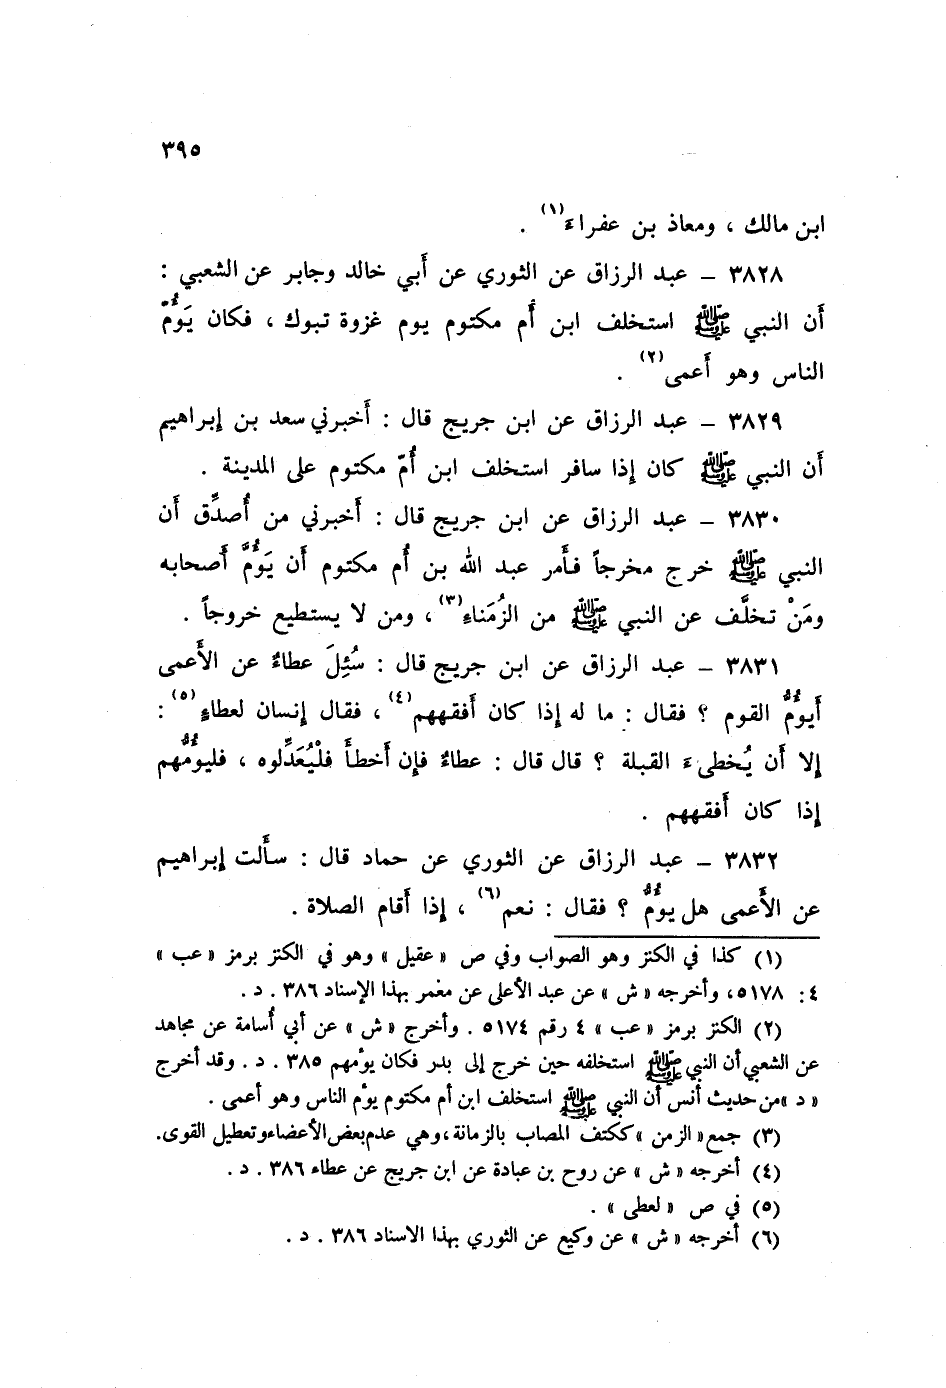 ٣٩٥
ابن مالك ، ومعاذ بن عفراء(١) .
٣٨٢٨ – عبد الرزاق عن الثوري عن أَبي خالد وجابر عن الشعبي :
أَن النبي ﷺ استخلف ابن أُم مكتوم يوم غزوة تبوك ، فكان يَؤُمّ
الناس وهو أَعمى(٢) .
٣٨٢٩ – عبد الرزاق عن ابن جريج قال : أَخبرني سعد بن إِبراهيم
أَن النبي ﷺ كان إِذا سافر استخلف ابن أُمّ مكتوم على المدينة .
٣٨٣٠ – عبد الرزاق عن ابن جريج قال : أَخبرني من أُصدِّق أَن
النبي ﷺ خرج مخرجاً فأَمر عبد الله بن أُم مكتوم أَن يَؤُمَّ أَصحابه
ومَنْ تخلَّف عن النبي ﷺ من الزُمَناءِ(٣) ، ومن لا يستطيع خروجاً .
٣٨٣١ – عبد الرزاق عن ابن جريج قال : سُئِلَ عطاءٌ عن الأَعمى
أَيؤُمُّ القوم ؟ فقال : ما له إِذا كان أَفقههم(٤) ، فقال إِنسان لعطاءٍ(٥) :
إِلا أَن يُخطىءَ القبلة ؟ قال قال : عطاءٌ فإِن أَخطأَ فلْيُعَدِّلوه ، فليؤُمُّهم
إِذا كان أَفقههم .
٣٨٣٢ – عبد الرزاق عن الثوري عن حماد قال : سأَلت إِبراهيم
عن الأَعمى هل يؤُمُّ ؟ فقال : نعم(٦) ، إِذا أَقام الصلاة .
(١) كذا في الكنز وهو الصواب وفي ص « عقيل » وهو في الكنز برمز « عب »
٤: ٥١٧٨، وأخرجه « ش » عن عبد الأعلى عن معمر بهذا الإسناد ٣٨٦ . د .
(٢) الكنز برمز « عب » ٤ رقم ٥١٧٤ . وأخرج « ش » عن أبي أُسامة عن مجاهد
عن الشعبي أن النبي ﷺ استخلفه حين خرج إلى بدر فكان يؤمهم ٣٨٥ . د . وقد أخرج
« د » من حديث أنس أن النبي ﷺ استخلف ابن أم مكتوم يؤم الناس وهو أعمى .
(٣) جمع « الزمن » ككتف المصاب بالزمانة ، وهي عدم بعض الأعضاء وتعطيل القوى.
(٤) أخرجه « ش » عن روح بن عبادة عن ابن جريج عن عطاء ٣٨٦ . د .
(٥) في ص « لعطى » .
(٦) أخرجه « ش » عن وكيع عن الثوري بهذا الاسناد ٣٨٦ . د .